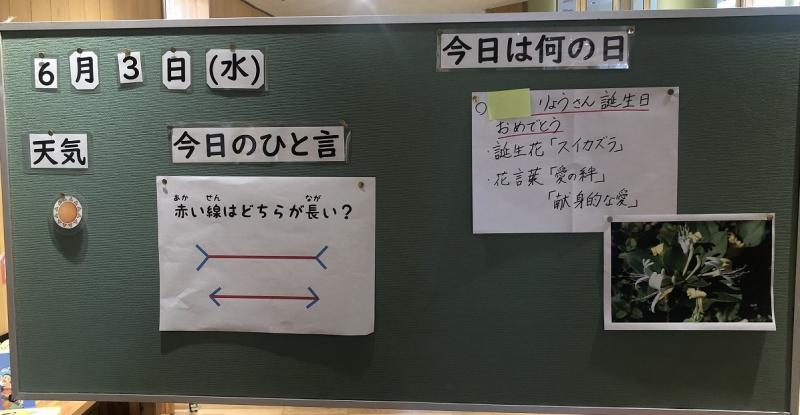 6月3日(水)
天気
今日のひと言
あか せん なが
赤い線はどちらが長い?
今日は何の日
○ りょうさん 誕生日
おめでとう
・誕生花「スイカズラ」
・花言葉「愛の絆」
「献身的な愛」